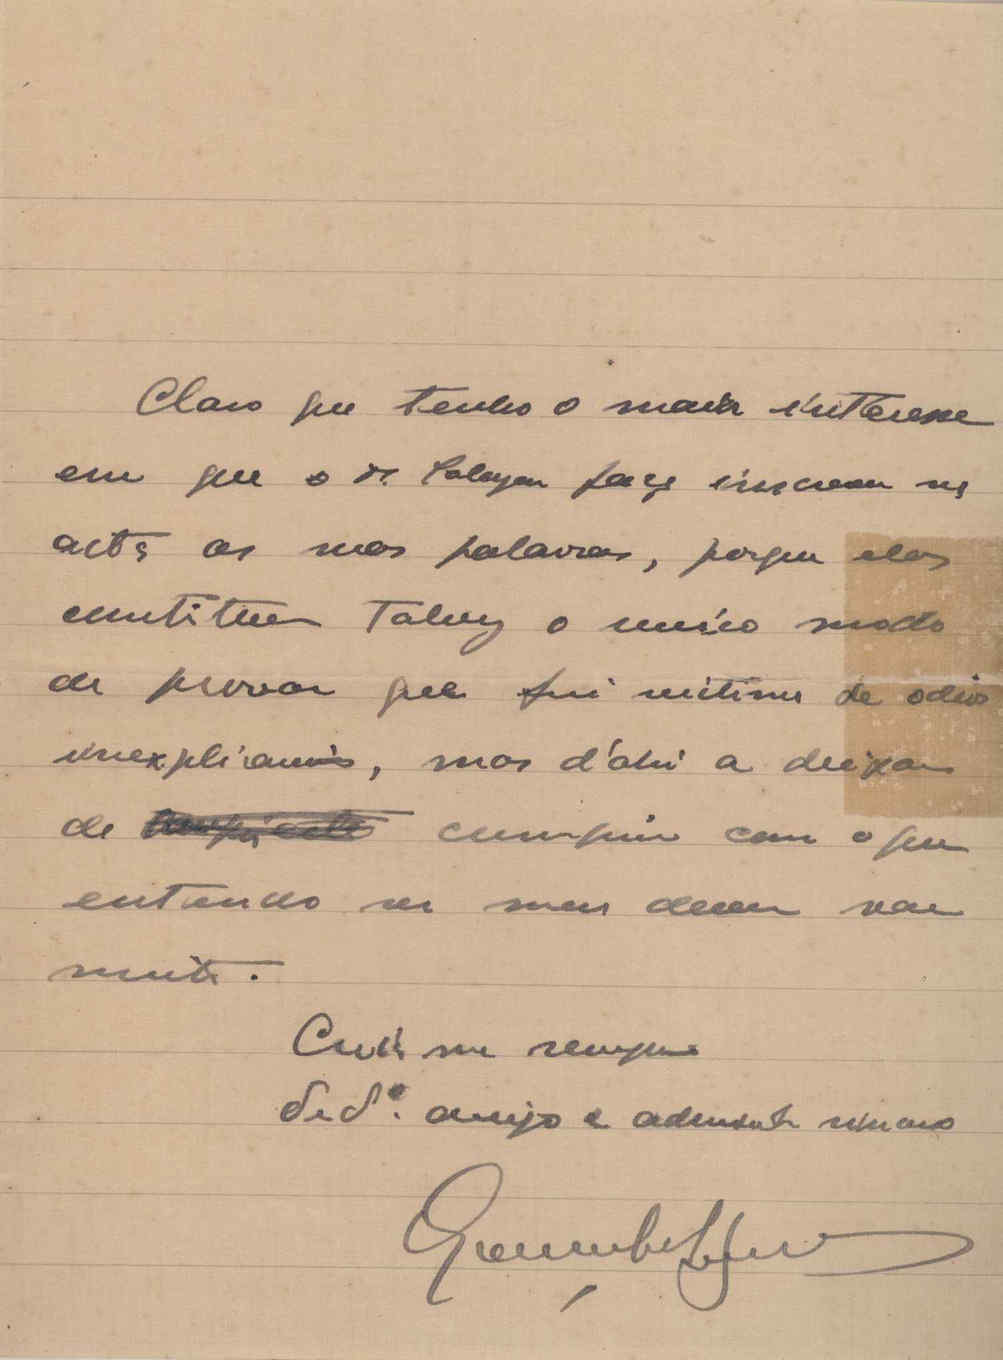 Claro que tenho o maior interesse
em que o dr. faça inscrever na
acta as suas palavras, porque elas
constituem talvez o unico modo
de provar que fui victima de odios
inexplicaveis, mas d'ahi a deixar
de cumprir com o que
entendo ser meu dever vae
muito.
Creia-me sempre
Ded.º amigo e admirador sincero